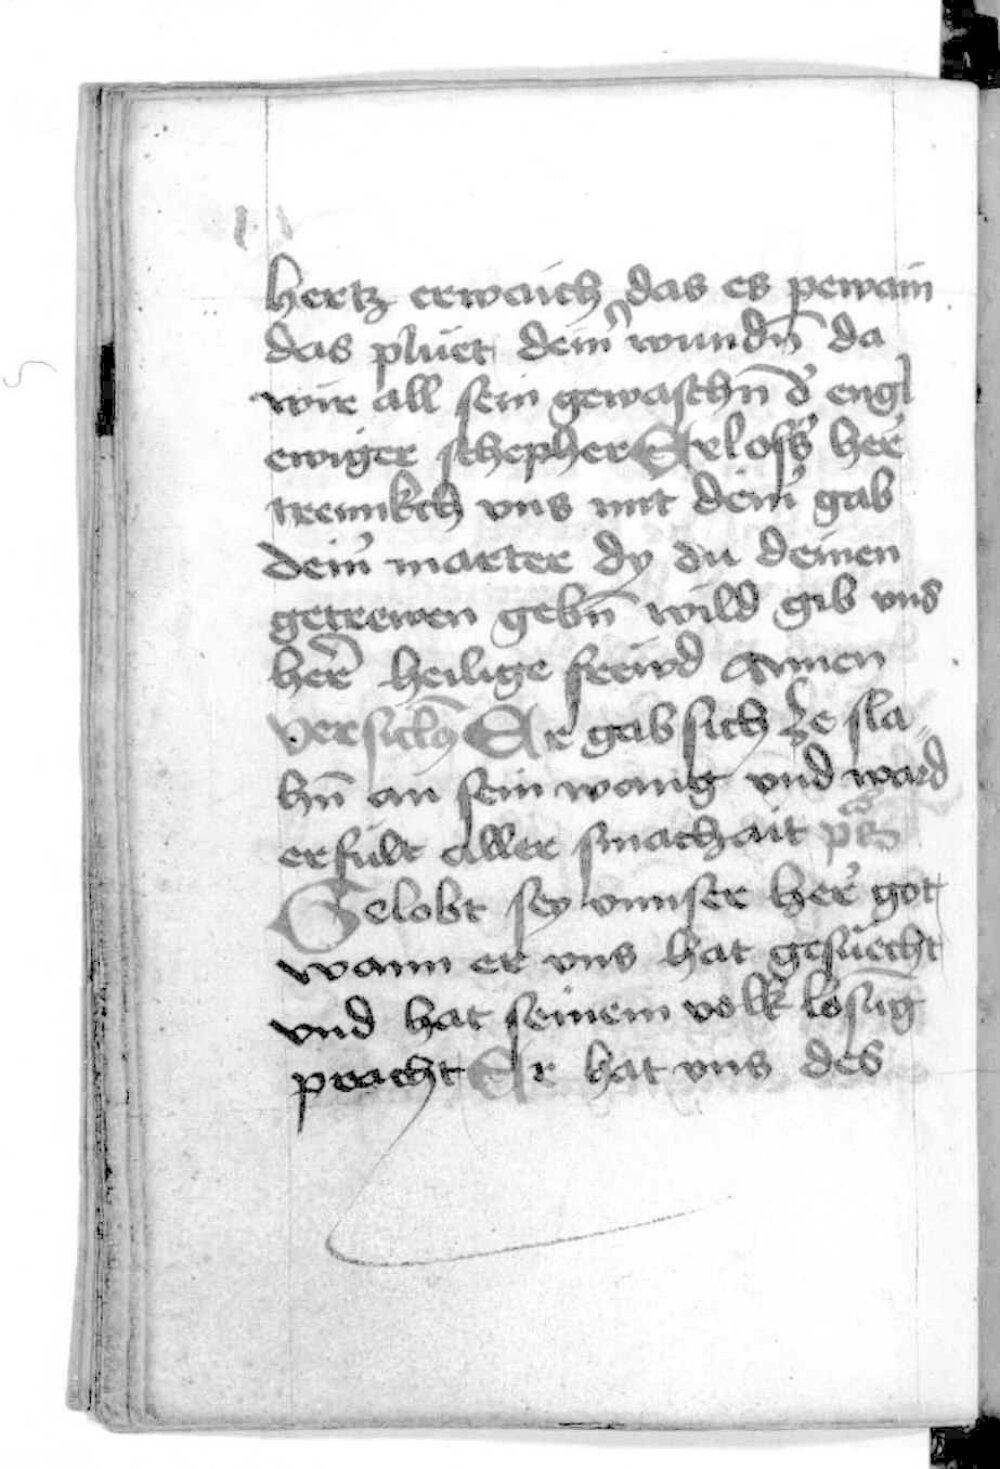 hertz erwaich das es pewain
das plüet dein̛ wundn̄ da
wir all sein gewaschn̄ d̛ engl
ewiger schepher Erloss̛ her̛
trennkch vns mit dein̛ gab
dein̛ marter dy du deinen
getrewen gebn̄ wild gib vns
her̄ heilige frewd Amen
versiclus Er gab sich ze sla„
hn̄ an sein wang vnd ward
erfült aller smachait ps
Gelobt sey vnnser her̛ got
wann er vns hat gesüecht
vnd hat seinem volk lösūg
pracht Er hat vns des